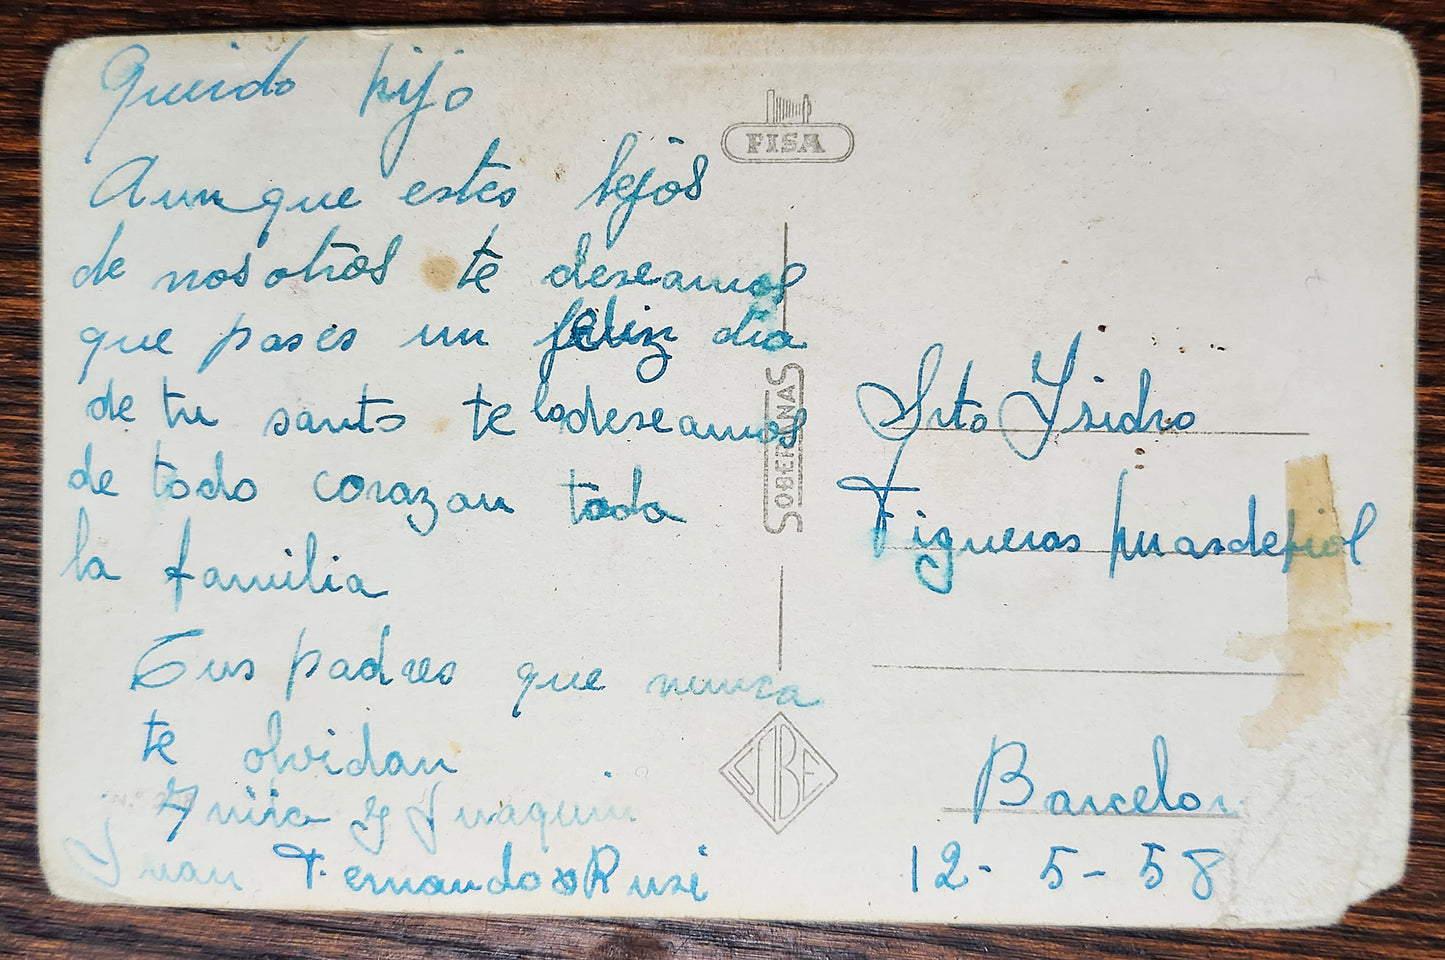 Querido hijo
Aunque estes lejos
de nosotros te deseamos
que pases un feliz dia
de tu santo te lo deseamos
de todo corazan toda
la familia
Tus padres que nunca
te olvidan
y Juaquin
Juan Fernando Rusi
FISA
SOBERANAS
Srto Ysidro
Figueras masdefiol
Barcelon
12-5-58